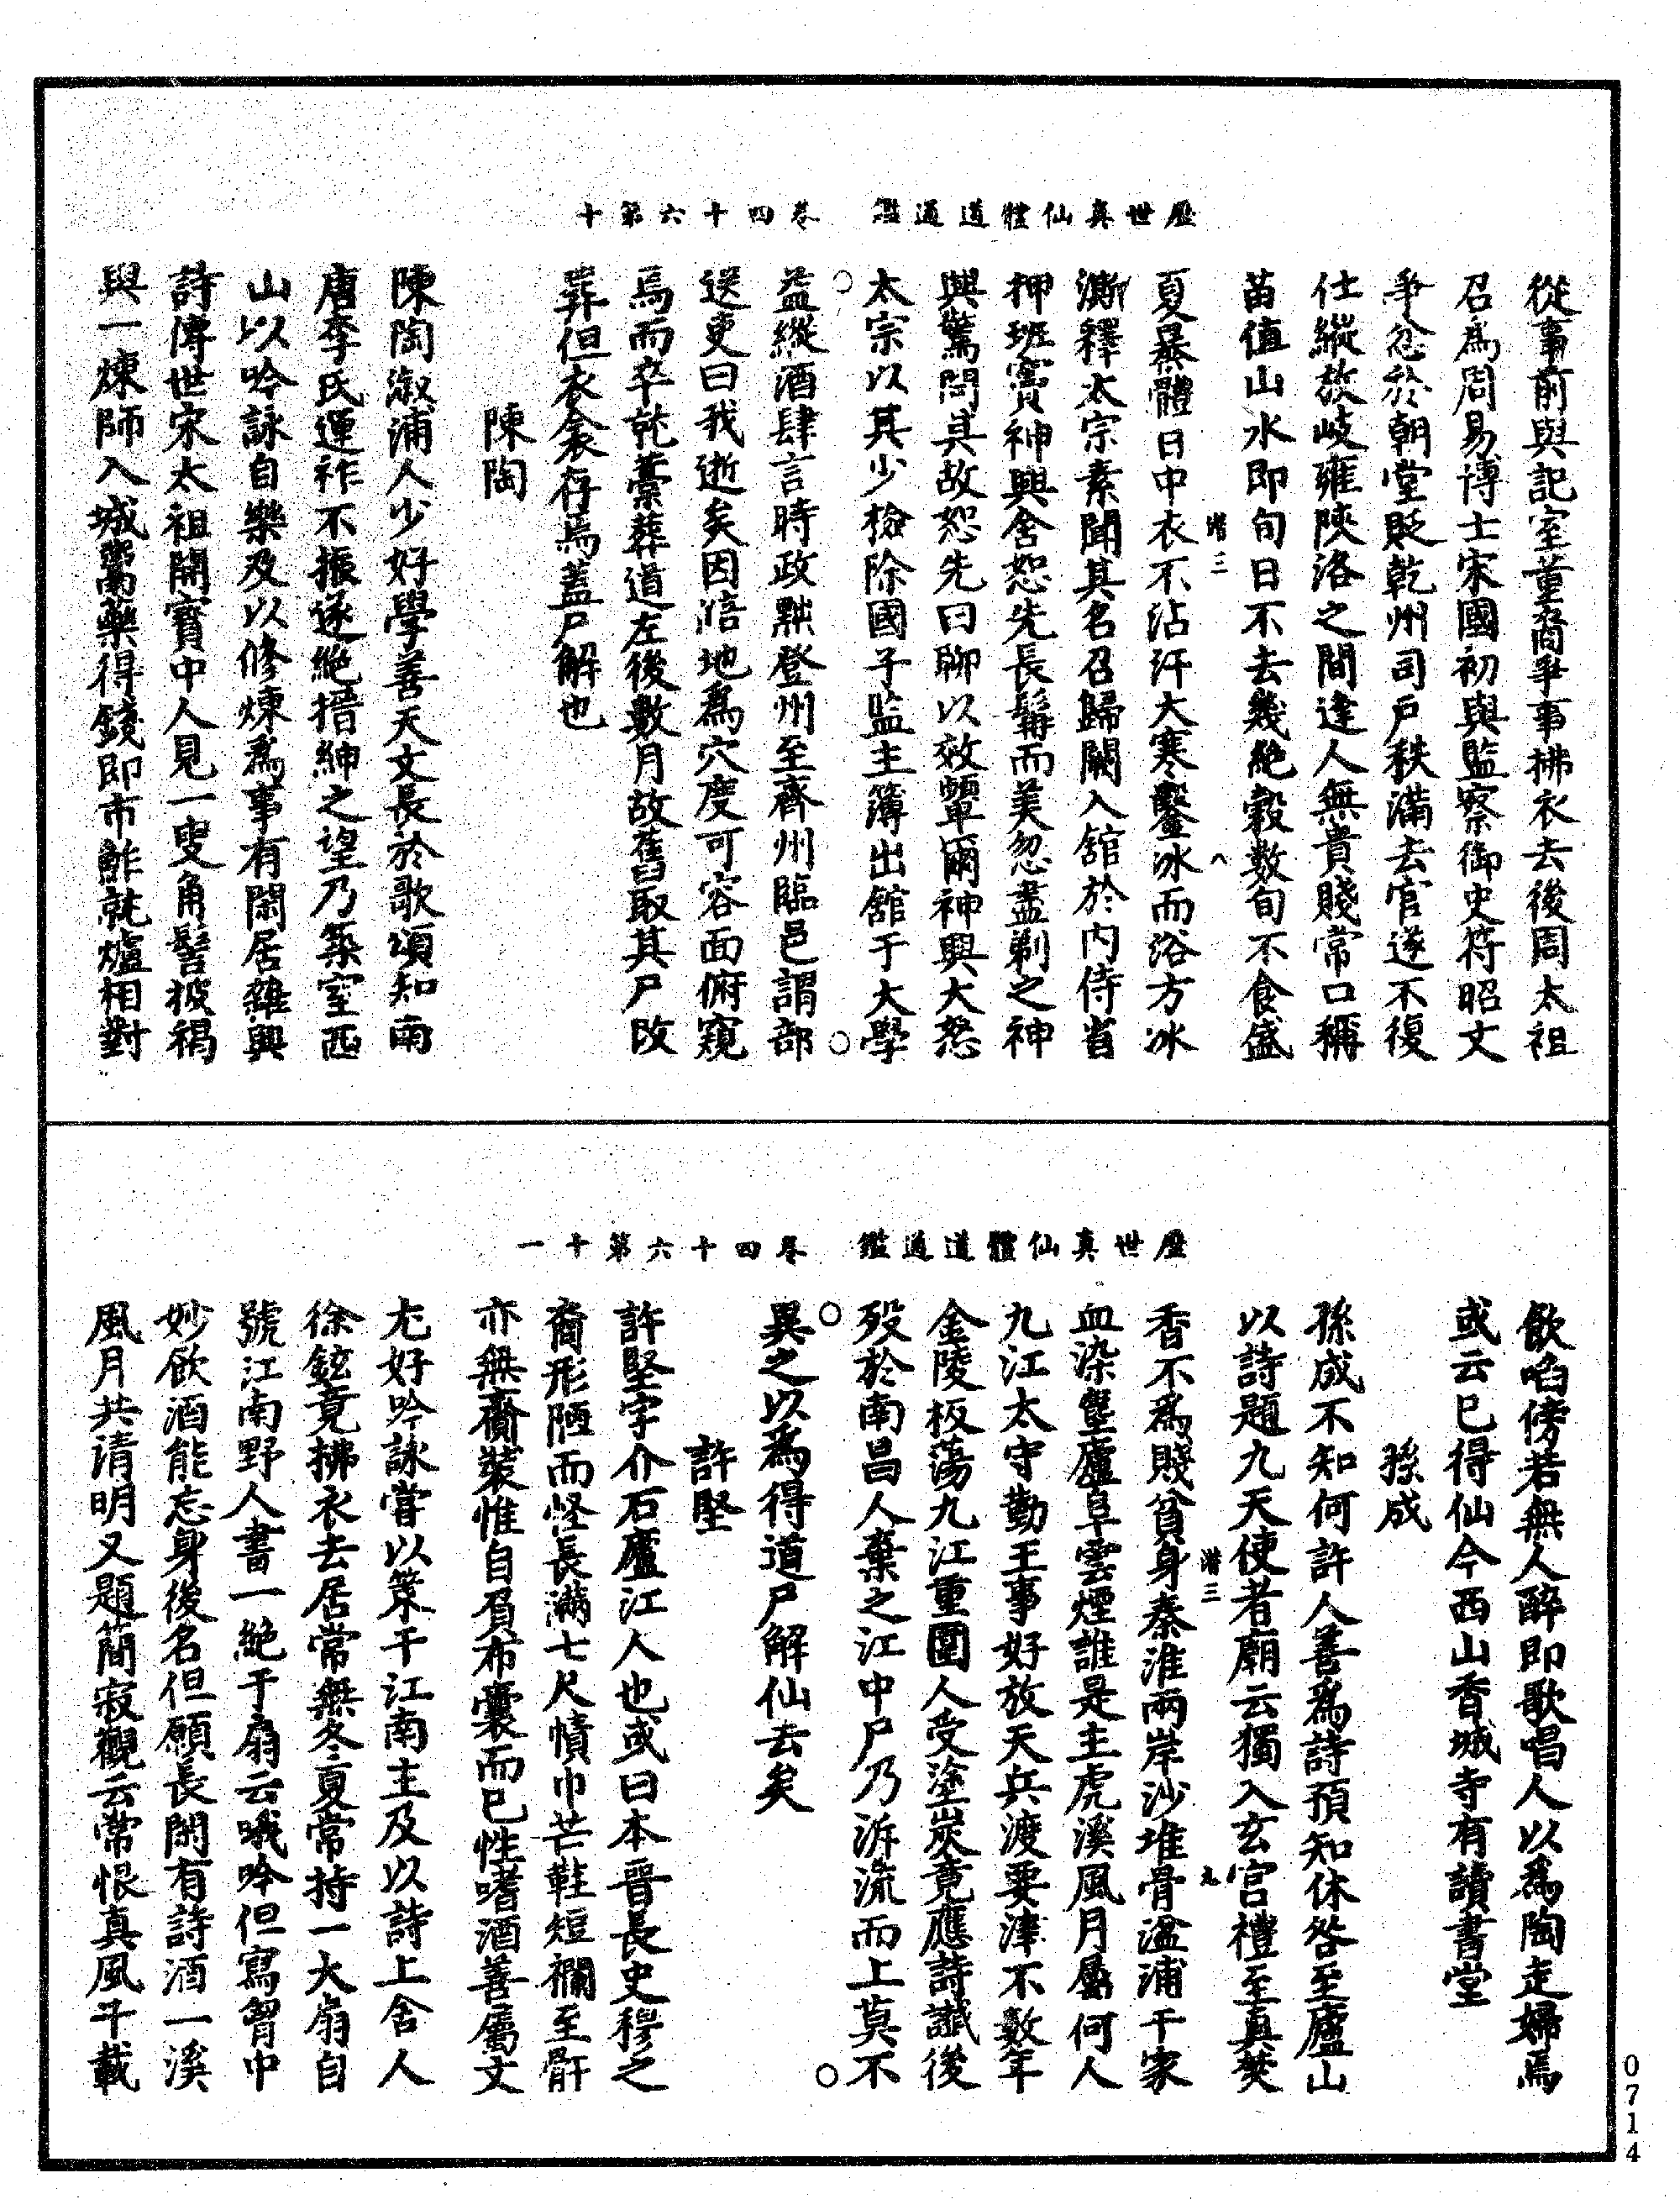 歷世真仙體道通鑑　卷四十六第十
從事前與記室董裔爭事拂衣去後周太祖
召為周易博士宋國初與監察御史符昭文
爭忿於朝堂貶乾州司戶秩滿去官遂不復
仕縱放岐雍陝洛之間逢人無貴賤常口稱
苗值山水即旬日不去幾絕穀數旬不食盛
潜三
八
夏暴體日中衣不沾汗大寒鑿冰而浴方冰
澌釋太宗素聞其名召歸闕入舘於內侍省
押班竇神興舍恕先長髯而美忽盡剃之神
興驚問其故恕先曰聊以效顰爾神興大怒
太宗以其少檢除國子監主簿出舘于大學
益縱酒肆言時政黜登州至齊州臨邑謂部
送吏曰我逝矣因掊地為穴度可容面俯窺
焉而卒乾藁葬道左後數月故舊取其尸改
葬但衣衾存焉蓋尸解也
陳陶
陳陶淑浦人少好學善天文長於歌頌知南
唐李氏運祚不振遂絕搢紳之望乃築室西
山以吟詠自樂及以修煉為事有閑居雜興
詩傳世宋太祖開寶中人見一叟角髻披褐
與一煉師入城鬻藥得錢即市鮓就爐相對
歷世真仙體道通鑑　卷四十六第十一
飲啗傍若無人醉即歌唱人以為陶走婦焉
或云巳得仙今西山香城寺有讀書堂
孫成
孫成不知何許人善為詩預知休咎至廬山
以詩題九天使者廟云獨入玄宮禮至真焚
潜三
九
香不為賤貧身秦淮兩岸沙堆骨湓浦千家
血染塵廬阜雲煙誰是主虎溪風月屬何人
九江太守勤王事好放天兵渡要津不數年
金陵板蕩九江重圍人受塗炭竟應詩讖後
歿於南昌人棄之江中尸乃泝流而上莫不
異之以為得道尸解仙去矣
許堅
許堅字介石廬江人也或曰本晉長史穆之
裔形陋而怪長滿七尺幘巾芒鞋短襴至骭
亦無齎裝惟自負布囊而巳性嗜酒善屬文
尤好吟詠嘗以策干江南主及以詩上舍人
徐鉉竟拂衣去居常無冬夏常持一大扇自
號江南野人書一絕于扇云哦吟但寫胷中
妙飲酒能忘身後名但願長閑有詩酒一溪
風月共清明又題簡寂觀云常恨真風千載
0714